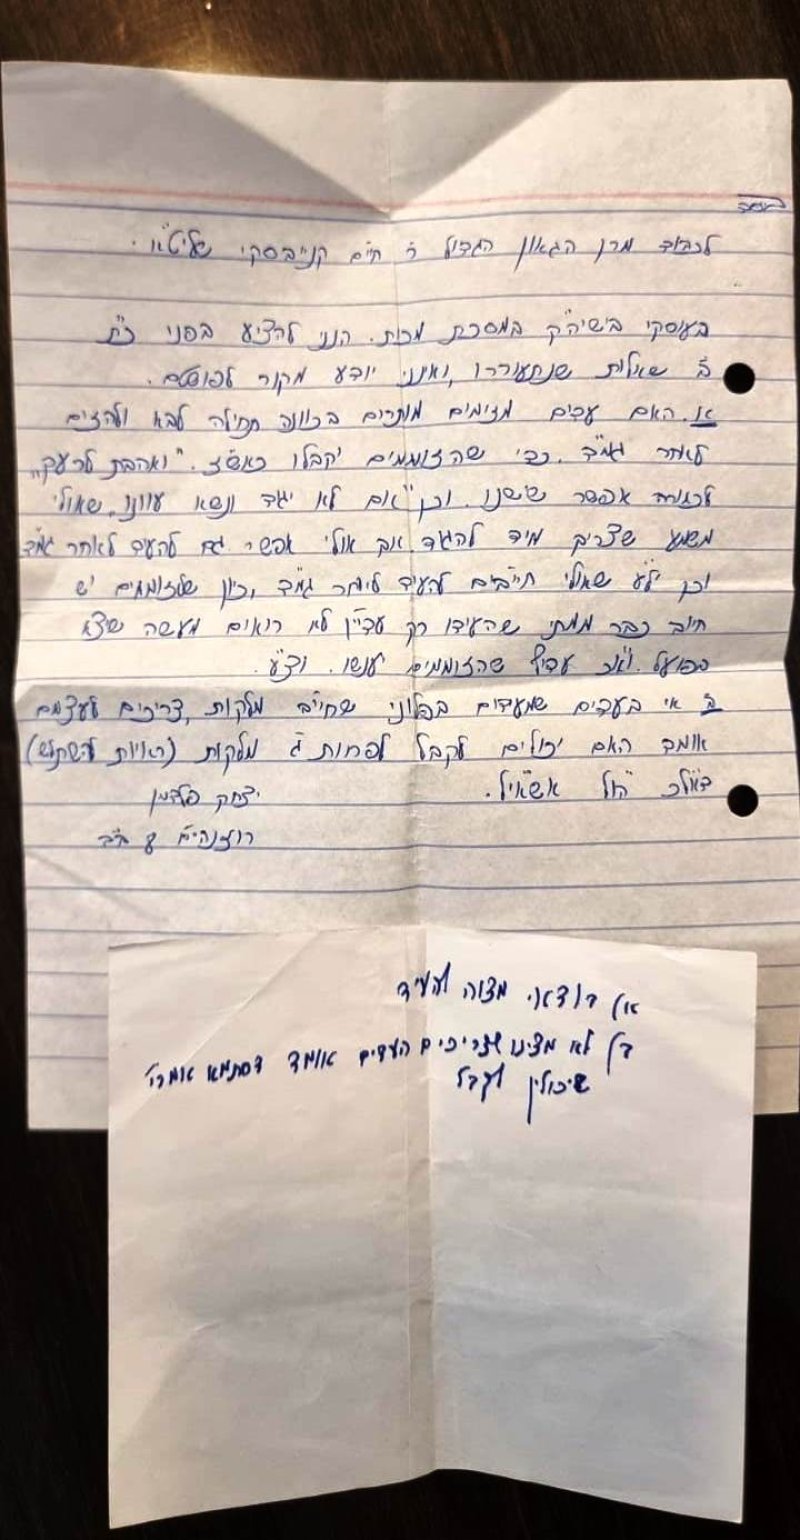 בעזה
לכבוד מרן הגאון הגדול ר' חיים קנייבסקי שליט"א.
בעוסקי בישיה"ק במסכת מכות. הנני להציע בפני כ"ת
ב' שאלות שנתעוררו, ואינני יודע מקור לפושטם.
א. האם עדים מזימים מותרים בכוונה תחילה לבא ולהזים
לאחר גמ"ד. כדי שהזוממים יקבלו כאש"ז. "ואהבת לרעך"
לכאורה אפשר שישנו. וכן "אם לא יגיד ונשא עוונו" שאולי
משמע שצריך מיד להגיד. אך אולי אפשר גם להעיד לאחר גמ"ד
וכן יל"ע שאולי חייבים להעיד לאחר גמ"ד, כיון שלזוממים יש
חיוב כבר ממתי שהעידו רק עדיין לא רואים מעשה שיצא
בפועל. וא"כ עדיף שהזוממים יענשו. וצ"ע.
ב אי בעדים שמעדים בפלוני שחייב מלקות, צריכים לעצמם
אומד האם יכולים לקבל לפחות ג' מלקות (ראויות להשתלש)
יצחק פלדמן
א) בודאי מצוה להעיד
ב) לא מצינו שצריכים העדים אומד דסתמא אמרי'
שיכולין לקבל